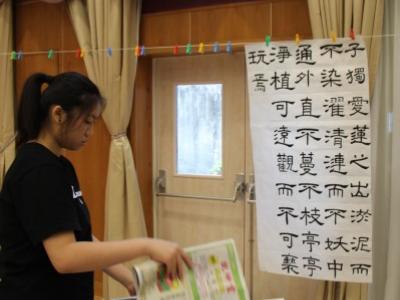 予獨愛蓮之出淤泥而
不染濯清漣而不妖中
通外直不蔓不枝亭亭
淨植可遠觀而不可褻
玩焉